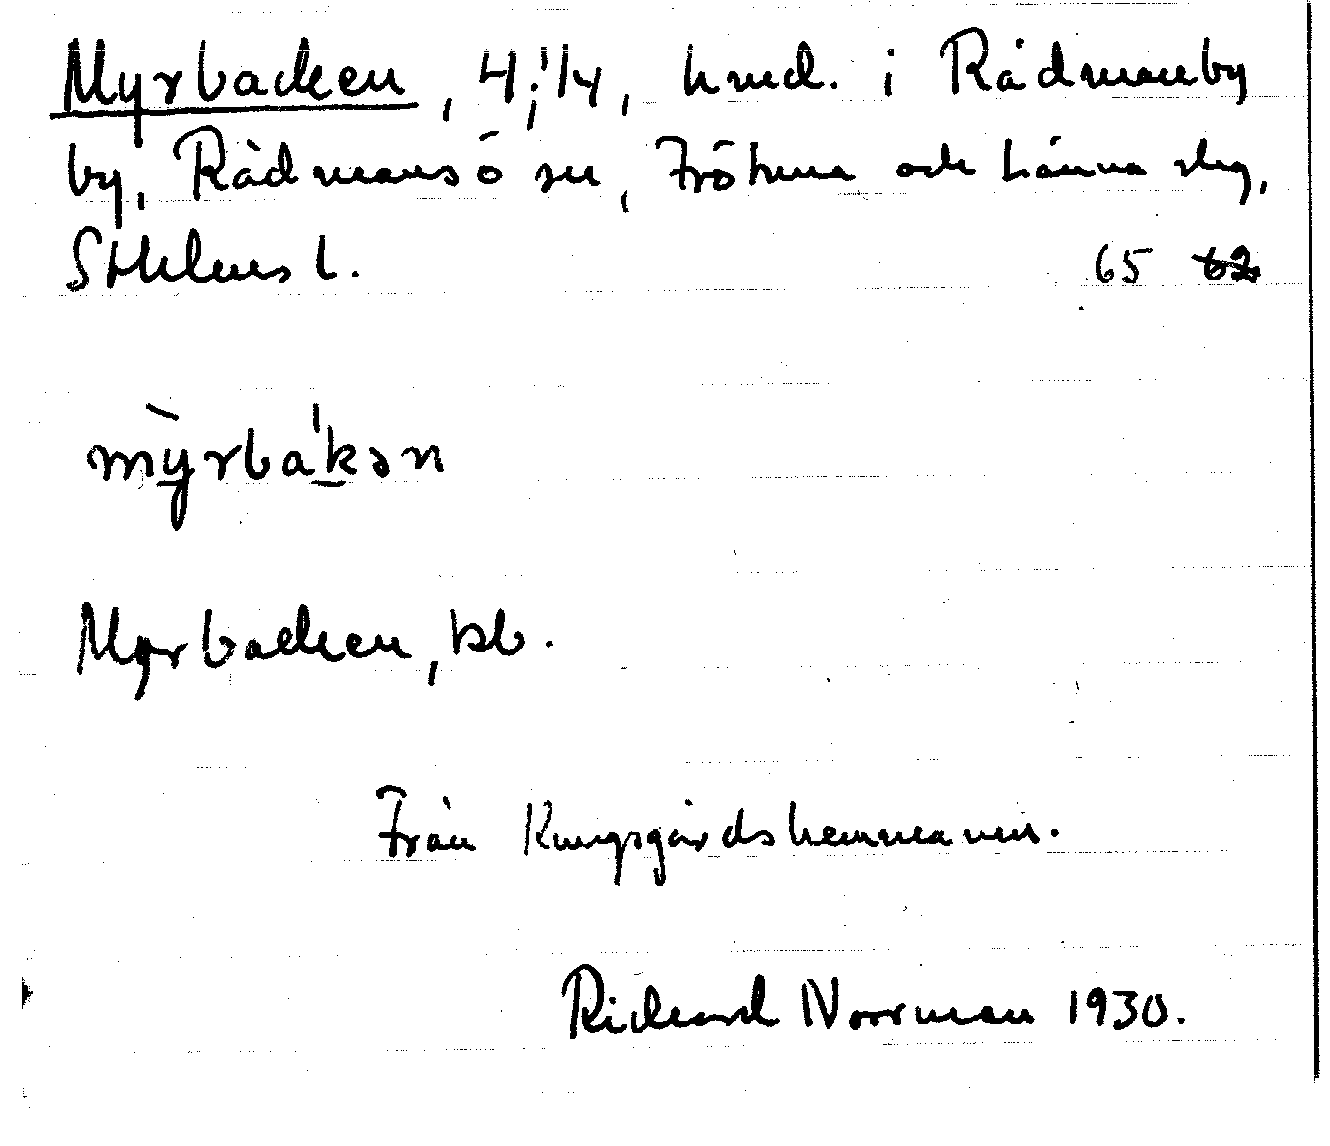 Myrbacken, 4:1/4, hmd. i Rådmanby
by, Rådmansö sn, Frötuna och Länna slg,
Sthlms l. 65 62
mỳrbákən
Myrbacken, kb.
Från Kungsgårdshemmanen.
Richard Norrman 1930.